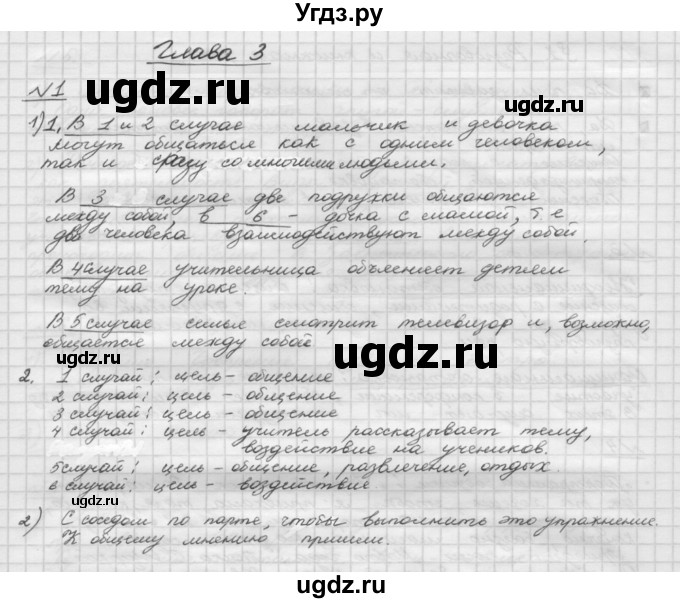 Угдз.ру
Глава 3
ugdz.ru
ugdz.ru
№1
1) 1. В 1 и 2 случае мальчик и девочка
могут общаться как с одним человеком,
так и сразу со многими людьми.
В 3 случае две подружки общаются
между собой, в 6 - дочка с мамой, т.е
два человека взаимодействуют между собой.
ugdz.ru
ugdz.ru
В 4 случае учительница объясняет детям
тему на уроке.
В 5 случае семья смотрит телевизор и, возможно,
общается между собой
ugdz.ru
ugdz.ru
2. 1 случай: цель - общение
2 случай: цель - общение
3 случай: цель - общение
4 случай: цель - учитель рассказывает тему,
воздействие на учеников.
5 случай: цель - общение, развлечение, отдых.
6 случай: цель - воздействие
ugdz.ru
ugdz.ru
2) С соседом по парте, чтобы выполнить это упражнение.
К общему мнению пришли.
ugdz.ru